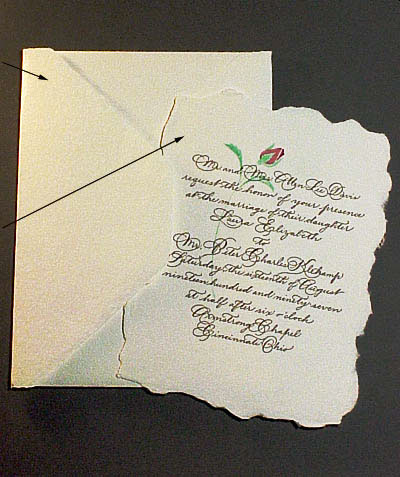 Mr. and Mrs. Allyn Lee Davis
request the honor of your presence
at the marriage of their daughter
Laura Elizabeth
to
Mr. Peter Charles
Saturday, the sixteenth of August
nineteen hundred and ninety-seven
at half after six o'clock
Armstrong Chapel
Cincinnati Ohio